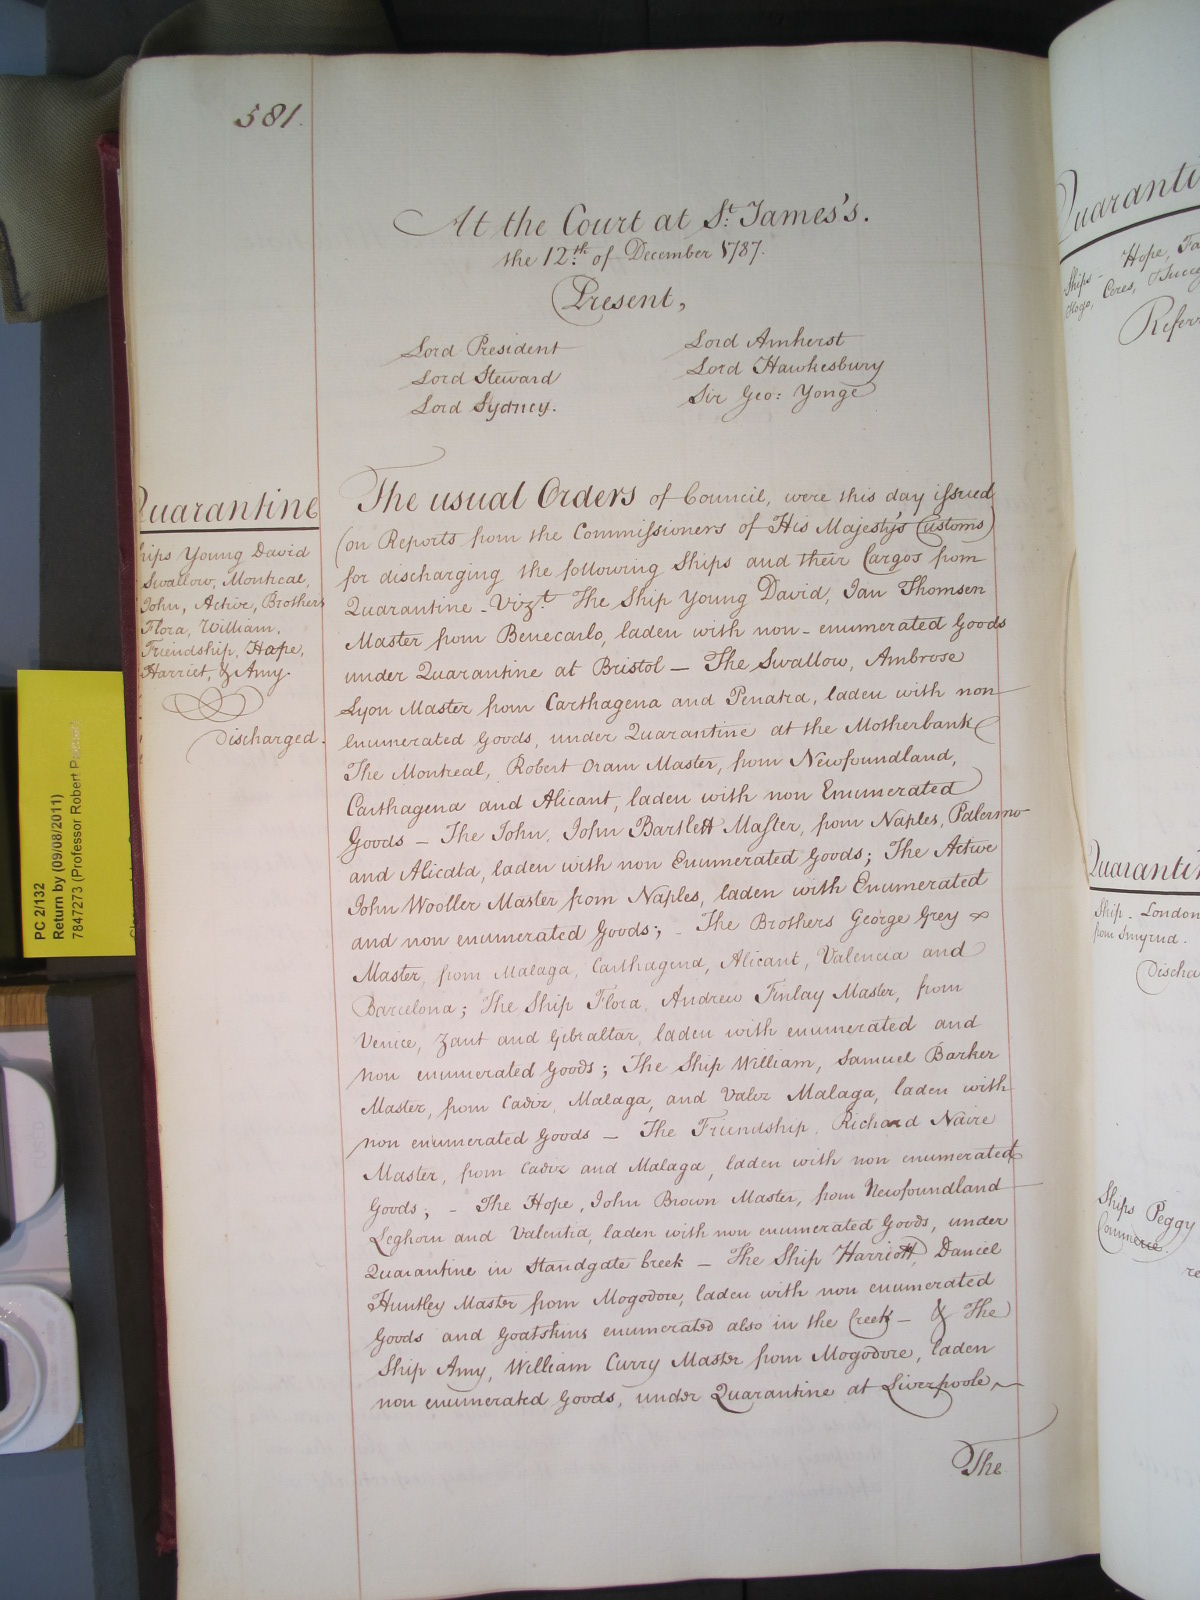 581.
At the Court at St. James's.
the 12th. of December 1787.
Present,
Lord President
Lord Steward
Lord Sydney.
Lord Amherst
Lord Hawkesbury
Sir Geo: Yonge
Quarantine
Ships Young David
Swallow, Montreal,
John, Active, Brothers
Flora, William,
Friendship, Hope,
Harriet, & Amy.
Discharged.
The usual Orders of Council, were this day issued
(on Reports from the Commissioners of His Majesty's Customs)
for discharging the following Ships and their Cargos from
Quarantine - Vizt. The Ship Young David, Ian Thomsen
Master from Benecarlo, laden with non-enumerated Goods
under Quarantine at Bristol — The Swallow, Ambrose
Lyon Master from Carthagena and Penatra, laden with non
enumerated Goods, under Quarantine at the Motherbank
The Montreal, Robert Oram Master, from Newfoundland,
Carthagena and Alicant, laden with non Enumerated
Goods — The John, John Bartlett Master, from Naples, Palermo
and Alicata, laden with non Enumerated Goods; The Active
John Wooller Master from Naples, laden with Enumerated
and non enumerated Goods; - The Brothers George Grey
Master, from Malaga, Carthagena, Alicant, Valencia and
Barcelona; The Ship Flora, Andrew Finlay Master, from
Venice, Zant and Gibraltar, laden with enumerated and
non enumerated Goods; The Ship William, Samuel Barker
Master, from Cadiz, Malaga, and Valez Malaga, laden with
non enumerated Goods — The Friendship, Richard Naire
Master, from Cadiz and Malaga, laden with non enumerated
Goods; - The Hope, John Brown Master, from Newfoundland
Leghorn and Valentia, laden with non enumerated Goods, under
Quarantine in Standgate Creek — The Ship Harriott, Daniel
Huntley Master from Mogodore, laden with non enumerated
Goods and Goatskins enumerated also in the Creek — & The
Ship Amy, William Curry Master from Mogodore, laden
non enumerated Goods, under Quarantine at Liverpoole,
The
PC 2/132
Return by (09/08/2011)
7847273 (Professor Robert
Ships - Hope,
Ceres,
Quarantin
Ship - London
from Smyrna.
Ships Peggy
Commerce.